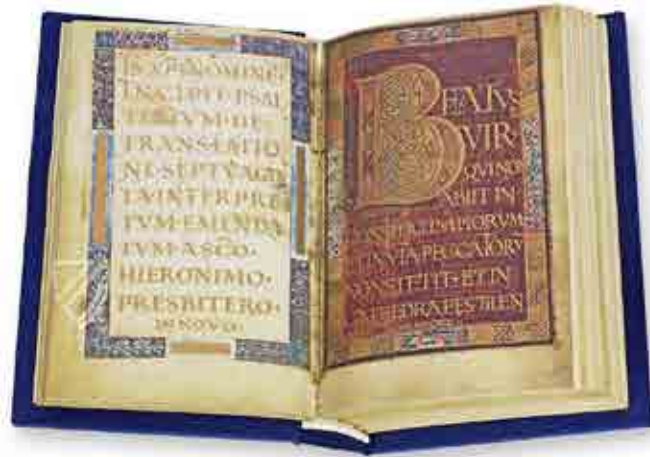 IN XPI NOMINE·
INCIPIT PSAL
TERIVM·DE·
TRANSLATIO
NE·SEPTVAGIN
TA·INTERPRE
TVM·EMENDA
TVM·A·SC̄O·
HIERONIMO·
PRESBITERO·
IN NOVO·
BEATVS
VIR·
QVI NO
ABIIT IN
IMPIORVM
ET IN VIA PECCATORV
NON STETIT·ET IN
PESTILEN